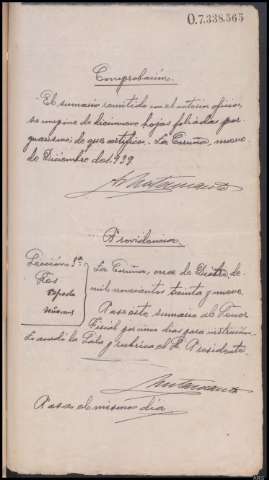 O.7.338.565
Comprobación.
El sumario remitido con el anterior oficio,
se compone de diecinueve hojas foliadas por
guarismos; de que certifico. La Coruña, nueve
de Diciembre de 1.939
Providencia
Sección 1ª
Sres
Espada
La Coruña, once de Dicbre. de
mil novecientos treinta y nueve.
Pase este sumario al Señor
Fiscal por cinco días para instrucción.
Lo acordó la Sala y rubrica el Sr Presidente.
Pasa el mismo día
ARG